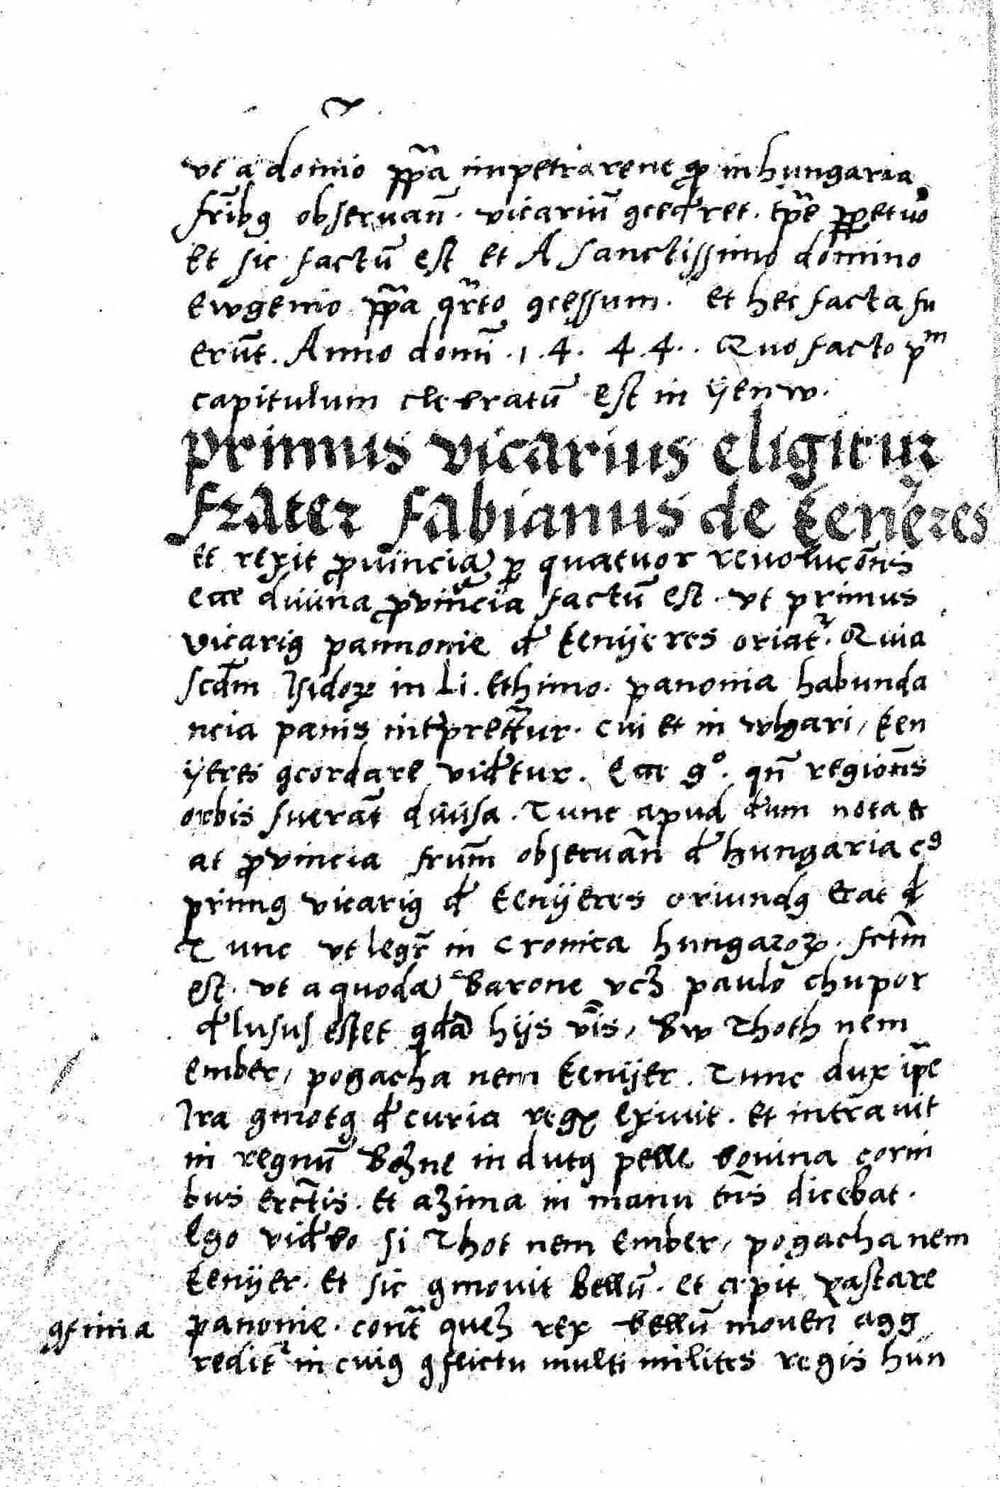 vt a domino ppa impetrarent qp in hungaria
fribg obseruan. vicariū gcedret. tpe ppetuo
Et sic factū est et A sanctissimo domino
Ewgenio ppa qrto gcessum. Et hec facta fu
erūt. Anno domī .1.4.4.4.. Quo facto pm
capitulum cleeratū est in ÿenw.
primus vicarius eligitur
Frater Fabianus de keneres
et rexit prouinciā p quatuor
diuina prouincia factū est. vt primus
vicarig pannonie de kenÿeres oriatr. Quia
scdm Isidoꝝ in Li. Ethimo. panonia habunda
ncia panis intpretatur. cui et in wlgari / ken
ÿeres gcordare videtur. qn̄ regiones
orbis fuerāt diuisa. Tunc apud nota
at prouincia frum obseruan de hungaria cg
primg vicarig de kenÿeres oriundg erat
Tunc vt legr in Cronica hungaroꝝ. fctm
est. vt a quodā Barone vcꝫ paulo chupor
delusus esset qdā hijs vīs / Bw Thoth nem
ember / pogacha nem kenÿer. Tunc dux ipe
Ira gmotg de curia regꝭ exiuit. et intrauit
in regnū Boꝫne indutg pelle bouina corni
bus erctis. et aꝫima in manu tn̄s dicebat.
Ego videbo si Thot nem ember / pogacha nem
kenÿer. et sic gmouit bellū. et cepit vastare
panonie. cont queꝫ rex bellū mouen agg
reditr in cuig gflictu multi milites regis hun
gfinia